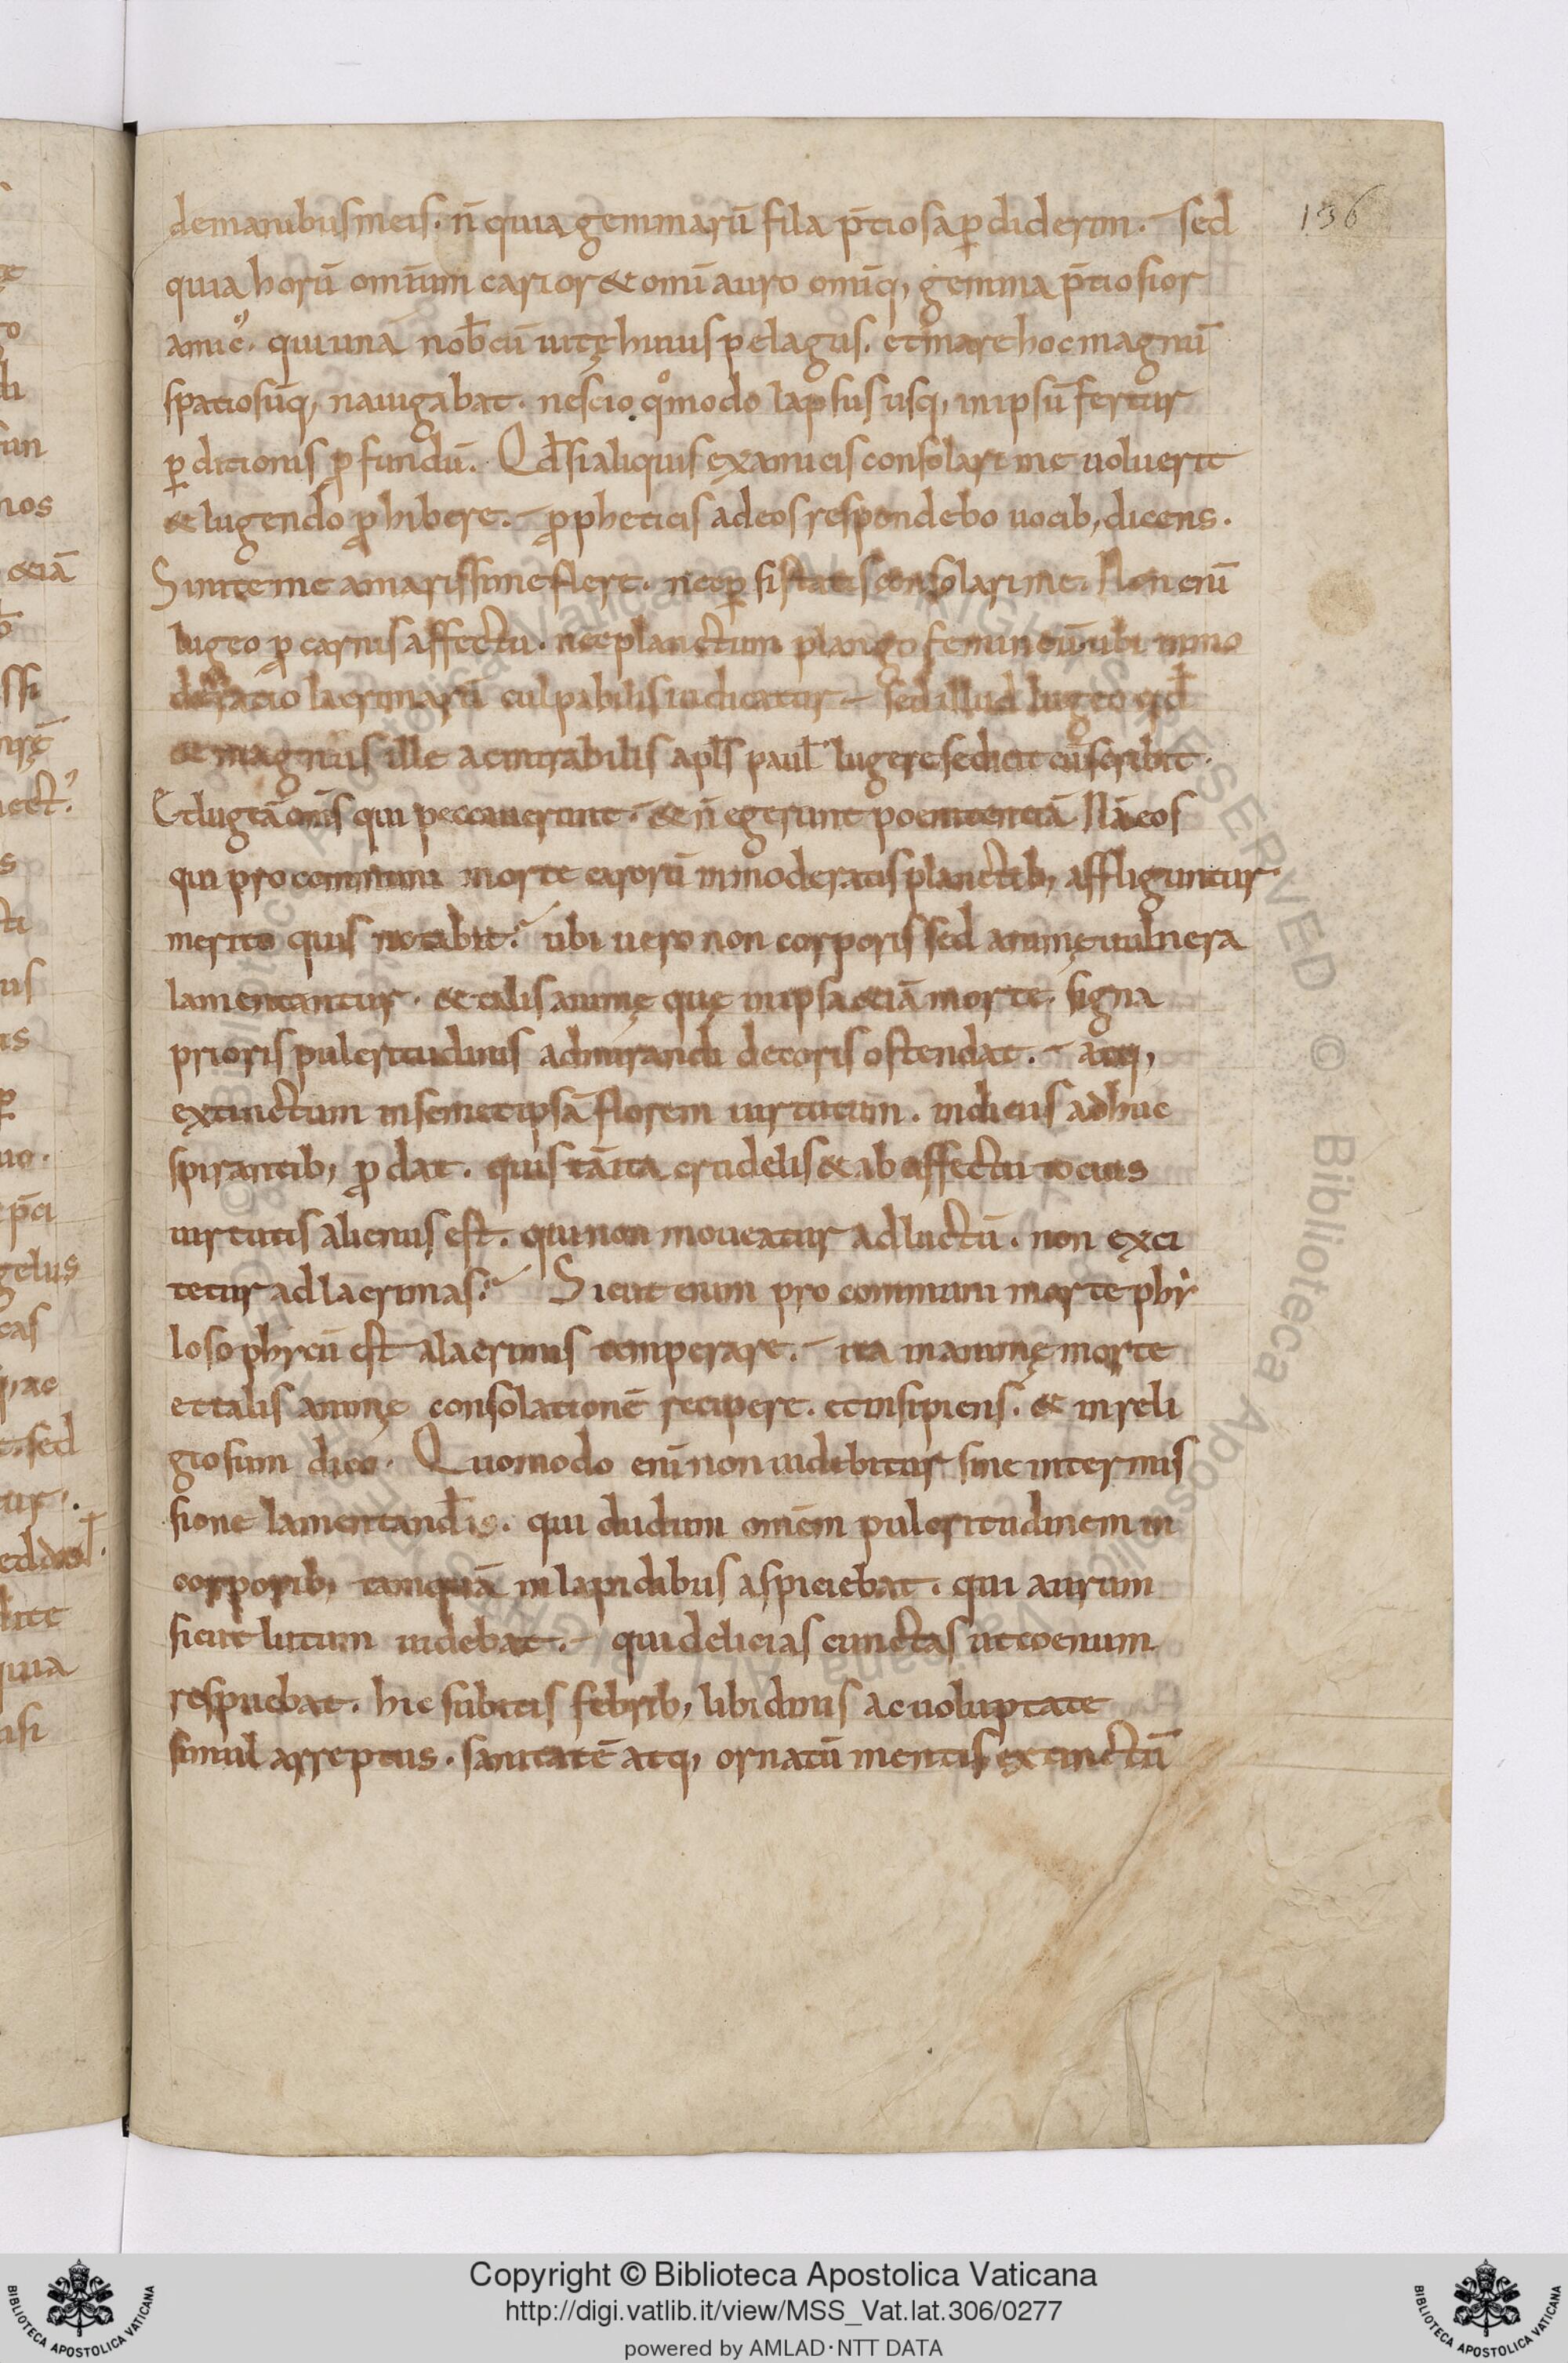 demanibus meis. n̄ quia gemmarū fila p̄tiosa ꝑdiderim. sed
quia horū omĩum carior & omi auro omiq, gemma p̄tiosior
amic᾽. qui unā nob̄ cū uitę huius pelagus. et mare hoc magnū
spatiosūq, nauigabat. nescio qͦmodo lapsus usq, in ipsū fertur
ꝑditionis ꝓfundū. Qd̄ si aliquis ex amicis consolari me uoluerit
& lugendo ꝓhibere. ꝓpheticis ad eos respondebo uocib, dicens.
Sinite me amarissime flere. nec ꝑsistatis consolari me. Non enī
lugeo ꝓ carnis affectu. nec planctum plango femineū ubi inmo
deratio lacrimarū culpabilis iudicatur sed illud lugeo qd̄
& magnus ille ac mirabilis apl̄s paul̄ lugere se dicit cū scribit.
Et lugeā om̄s qui peccauerunt. & n̄ egerunt poenitentiā Nā eos
qui pro communi morte carorū inmoderatis planctib, affliguntur
merito quis notabit? ubi uero non corporis sed animę uulnera
lamentantur. & talis animę quę in ipsa &iā morte. signa
prioris pulcritudinis admirandi decoris ostendat. atq,
extinctum in semetipsā florem uirtutum. indiciis adhuc
spirantib, ꝓdat. quis tā ita crudelis & ab affectu tocius
uirtutis alienus est. qui non moueatur ad luctū. non exci
tetur ad lacrimas? Sicut enim pro communi morte phy
losophycū est a lacrimis temperare. ita in animę morte
et talis animę consolationē recipere. et insipiens. & inreli
giosum dico. Quomodo enī non uidebitur sine intermis
sione lamentand̄is. qui dudum omēm pulcritudinem in
corporib, tamquā in lapidibus aspiciebat. qui aurum
sicut lutum uidebat. qui delicias cunctas ut coenum
respuebat. hic subitis febrib, libidinis ac uoluptate
simul arreptus. sanitatē atq, ornatū mentis extinctū
136
Copyright © Biblioteca Apostolica Vaticana
http://digi.vatlib.it/view/MSS_Vat.lat.306/0277
powered by AMLAD·NTT DATA
BIBLIOTECA APOSTOLICA VATICANA
BIBLIOTECA APOSTOLICA VATICANA